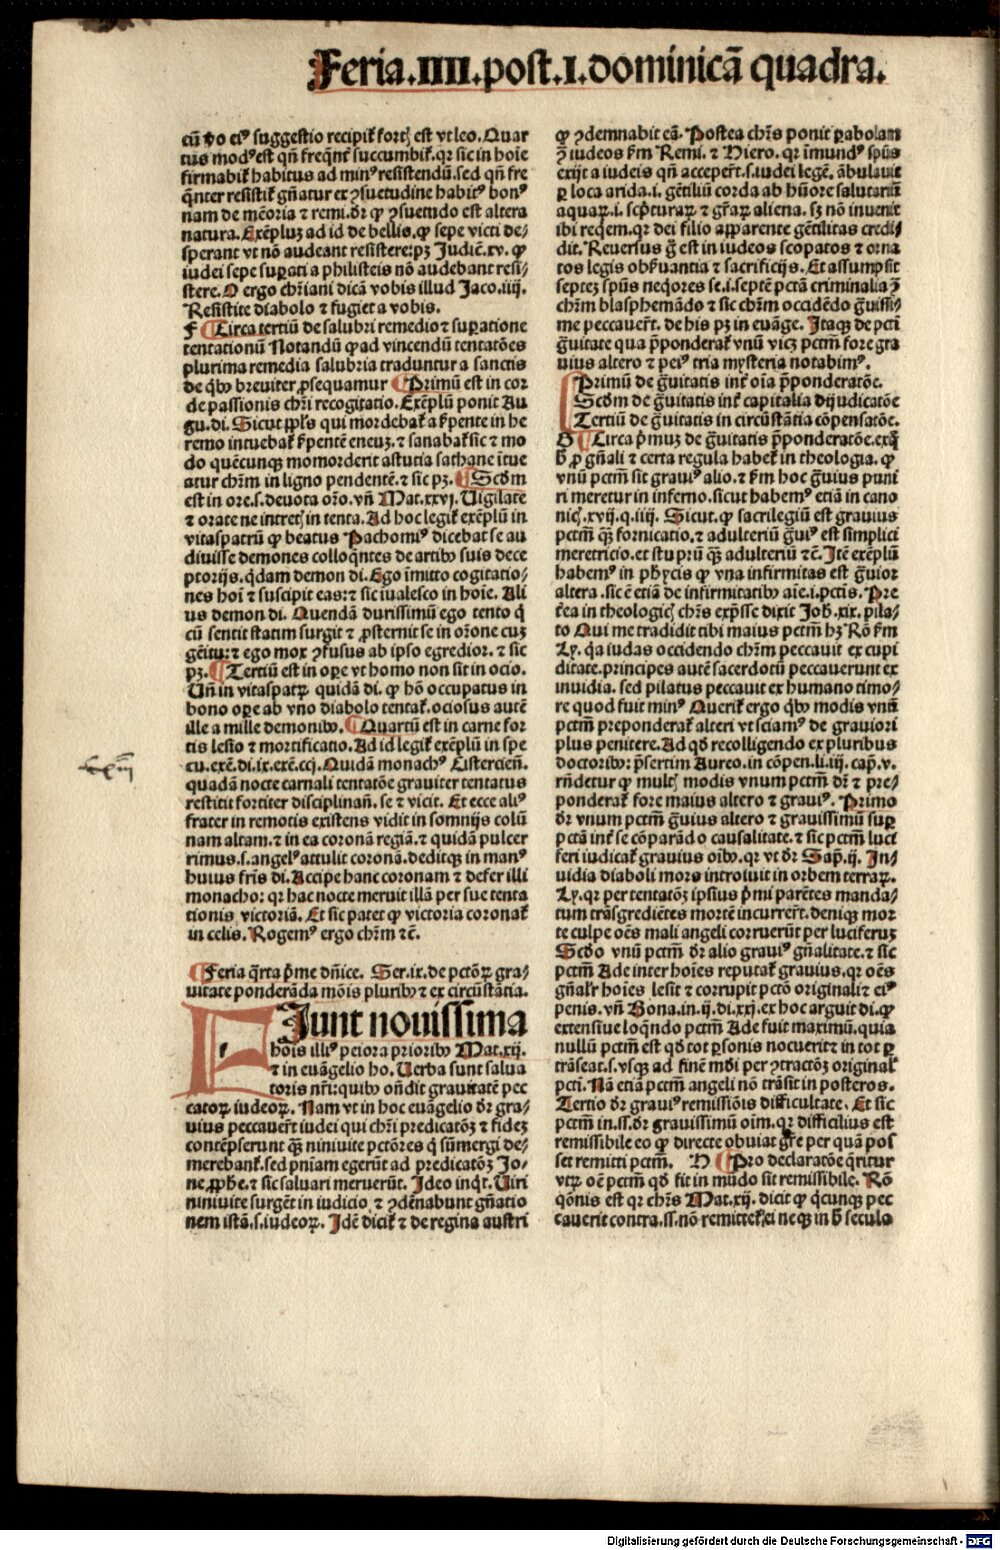 Feria.IIII.post.I.dominicā quadra.
cū ꝟo eiꝰ suggestio recipit᷑ fortꝭ est vt leo. Quar
tus modꝰ est qñ freq̄nt᷑ succumbit᷑. qꝛ sic in hoīe
firmabit᷑ habitus ad minꝰ resistendū. sed qñ fre
q̄nter resistit᷑ gñatur ex ꝯsuetudine habitꝰ bonꝰ
nam de mēoria ⁊ remi. dr̄ ꝙ ꝯsuetudo est altera
natura. Exēpluꝫ ad id de bellis. ꝙ sepe victi de⸗
sperant vt nō audeant resistere: pꝫ Judic̄. xv. ꝙ
iudei sepe suꝑati a philisteis nō audebant resi⸗
stere. O ergo chr̄iani dicā vobis illud Jaco. iiij.
Resistite diabolo ⁊ fugiet a vobis.
F Circa tertiū de salubri remedio ⁊ suꝑatione
tentationū Notandū ꝙ ad vincendū tentatōes
plurima remedia salubria traduntur a sanctis
de qͥbꝰ breuiter ꝓsequamur Primū est in cor
de passionis chr̄i recogitatio. Exēplū ponit Au
gu. di. Sicut ppl̄s qui mordebat᷑ a ẜpente in he
remo intuebat᷑ ẜpentē eneuꝫ. ⁊ sanabat᷑ sic ⁊ mo
do quēcunqꝫ momorderit astutia sathane ītue
atur chr̄m in ligno pendentē. ⁊ sic pꝫ. Scd̄m
est in ore. s. deuota or̄o. vn̄ Mat. xxvj. Uigilate
⁊ orate ne intretꝭ in tenta. Ad hoc legit᷑ exēplū in
vitaspatrū ꝙ beatus Pachomiꝰ dicebat se au
diuisse demones colloq̄ntes de artibꝰ suis dece
ptorijs. q̇dam demon di. Ego īmitto cogitatio⸗
nes hoīi ⁊ suscipit eas: ⁊ sic īualesco in hoīe. Ali
us demon di. Quendā durissimū ego tento q̇
cū sentit statim surgit ⁊ ꝓsternit se in or̄one cuꝫ
gēitu: ⁊ ego mox ꝯfusus ab ipso egredior. ⁊ sic
pꝫ. Tertiū est in oꝑe vt homo non sit in ocio.
Un̄ in vitaspatꝝ quidā di. ꝙ hō occupatus in
bono oꝑe ab vno diabolo tentat᷑. ociosus autē
ille a mille demonibꝰ. Quartū est in carne for
tis lesio ⁊ mortificatio. Ad id legit᷑ exēplū in spe
cu. exē. di. ix. exē. ccj. Quidā monachꝰ Cistercieñ.
quadā nocte carnali tentatōe grauiter tentatus
restitit fortiter disciplinañ. se ⁊ vicit. Et ecce aliꝰ
frater in remotis existens vidit in somnijs colū
nam altam. ⁊ in ea coronā regiā. ⁊ quidā pulcer
rimus. s. angelꝰ attulit coronā. deditqꝫ in manꝰ
huius fr̄is di. Accipe hanc coronam ⁊ defer illi
monacho: qꝛ hac nocte meruit illā per sue tenta
tionis victoriā. Et sic patet ꝙ victoria coronat᷑
in celis. Rogemꝰ ergo chr̄m ⁊c̄.
Feria q̄rta p̄me dn̄ice. Ser. ix. de pctōꝝ gra⸗
uitate ponderāda mōis pluribꝰ ⁊ ex circūstātia.
FIunt nouissima
hoīs illiꝰ peiora prioribꝰ Mat. xij.
⁊ in euāgelio ho. Uerba sunt salua
toris nr̄i: quibꝰ oñdit grauitatē pec
catoꝝ iudeoꝝ. Nam vt in hoc euāgelio dr̄ gra⸗
uius peccauer̄t iudei qui chr̄i predicatōꝫ ⁊ fideꝫ
contēpserunt qꝫ niniuite pctōres q̇ sūmergi de⸗
merebant᷑. sed pnīam egerūt ad predicatōꝫ Jo⸗
ne ꝓphe. ⁊ sic saluari meruerūt. Ideo inq̇t. Uiri
niniuite surgēt in iudicio, ⁊ ꝯdēnabunt gn̄atio
nem istā. s. iudeoꝝ. Idē dicit᷑ ⁊ de regina austri
ꝙ ꝯdemnabit eā. Postea chr̄s ponit ꝑabolam
ꝯ̄ iudeos ẜm Remi. ⁊ Hiero. qꝛ īmundꝰ spūs
exijt a iudeis qn̄ acceper̄t. s. iudei legē. ābulauit
ꝑ loca arida. i. gētiliū corda ab hūore salutariū
aquaꝝ. i. scp̄turaꝝ ⁊ gr̄aꝝ aliena. sꝫ nō inuenit
ibi reqēm. qꝛ dei filio apparente gētilitas credi⸗
dit. Reuersus g̊ est in iudeos scopatos ⁊ orna
tos legis obẜuantia ⁊ sacrificijs. Et assumpsit
septeꝫ spūs neq̇ores se. i. septē pctā criminalia ꝯ̄
chr̄m blasphemādo ⁊ sic chr̄m occidēdo g̊uissi⸗
me peccauer̄t. de his pꝫ in euāge. Itaqꝫ de pcti
g̊uitate qua p̄ponderat᷑ vnū vicꝫ pctm̄ fore gra
uius altero ⁊ peiꝰ tria mysteria notabimꝰ.
Primū de g̊uitatis int᷑ oīa p̄ponderatōe.
Scd̄m de g̊uitatis int᷑ capitalia dijudicatōe
Tertiū de g̊uitatis in circūstātia cōpensatōe.
G Circa p̄muꝫ de g̊uitatis p̄ponderatōe. exq̇
ƀ ꝓ gn̄ali ⁊ certa regula habet᷑ in theologia. ꝙ
vnū pctm̄ sit grauiꝰ alio. ⁊ ẜm hoc g̊uius puni
ri meretur in inferno. sicut habemꝰ etiā in cano
nicꝭ. xvij. q. iiij. Sicut. ꝙ sacrilegiū est grauius
pctm̄ qꝫ fornicatio. ⁊ adulteriū g̊uiꝰ est simplici
meretricio. et stuprū qꝫ adulteriū ⁊c̄. Itē exēplū
habemꝰ in phycis ꝙ vna infirmitas est g̊uior
altera. sic ē etiā de infirmitatibꝰ aīe. i. pctīs. Pre
t᷑ea in theologicꝭ chr̄s exp̄sse dixit Joh̄. xix. pila⸗
to Qui me tradidit tibi maius pctm̄ hꝫ Rō ẜm
Ly. q̇a iudas occidendo chr̄m peccauit ex cupi
ditate. principes autē sacerdotū peccauerunt ex
inuidia. sed pilatus peccauit ex humano timo⸗
re quod fuit minꝰ Querit᷑ ergo qͥbꝰ modis vnū
pctm̄ preponderat᷑ alteri vt sciamꝰ de grauiori
plus penitere. Ad qd̄ recolligendo ex pluribus
doctoribꝰ: p̄sertim Aureo. in cōpen. li. iij. cap̄. v.
rn̄detur ꝙ multꝭ modis vnum pctm̄ dr̄ ⁊ pre⸗
ponderat᷑ fore maius altero ⁊ grauiꝰ. Primo
dr̄ vnum pctm̄ g̊uius altero ⁊ grauissimū suꝑ
pctā int᷑ se cōparādo causalitate. ⁊ sic pctm̄ luci
feri iudicat᷑ grauius oībꝰ. qꝛ vt dr̄ Sap̄. ij. In⸗
uidia diaboli mors introiuit in orbem terraꝝ.
Ly. qꝛ per tentatōꝫ ipsius p̄mi parētes manda⸗
tum trāsgrediētes mortē incurrer̄t. deniqꝫ mor
te culpe oēs mali angeli corruerūt per luciferuꝫ
Scd̄o vnū pctm̄ dr̄ alio grauiꝰ gn̄alitate. ⁊ sic
pctm̄ Ade inter hoīes reputat᷑ grauius. qꝛ oēs
gn̄alr̄ hoīes lesit ⁊ corrupit pctō originali ⁊ eiꝰ
penis. vn̄ Bona. in. ij. di. xxj. ex hoc arguit di. ꝙ
extensiue loq̄ndo pctm̄ Ade fuit maximū. quia
nullū pctm̄ est qd̄ tot ꝑsonis nocuerit ⁊ in tot ꝑ
trāseat. s. vsqꝫ ad finē mūdi per ꝯtractōꝫ originalꝭ
pcti. Nā etiā pctm̄ angeli nō trāsit in posteros.
Tertio dr̄ grauiꝰ remissiōis difficultate. Et sic
pctm̄ in. ss. dr̄ grauissimū oīm. qꝛ difficilius est
remissibile eo ꝙ directe obuiat gr̄e per quā pos
set remitti pctm̄. H Pro declaratōe q̄ritur
vtꝝ oē pctm̄ qd̄ fit in mūdo sit remissibile. Rō
q̄onis est qꝛ chr̄s Mat. xij. dicit ꝙ q̇cunqꝫ pec
cauerit contra. ss. nō remittet᷑ ei neqꝫ in ƀ seculo
Digitalisierung gefördert durch die Deutsche Forschungsgemeinschaft - DFG